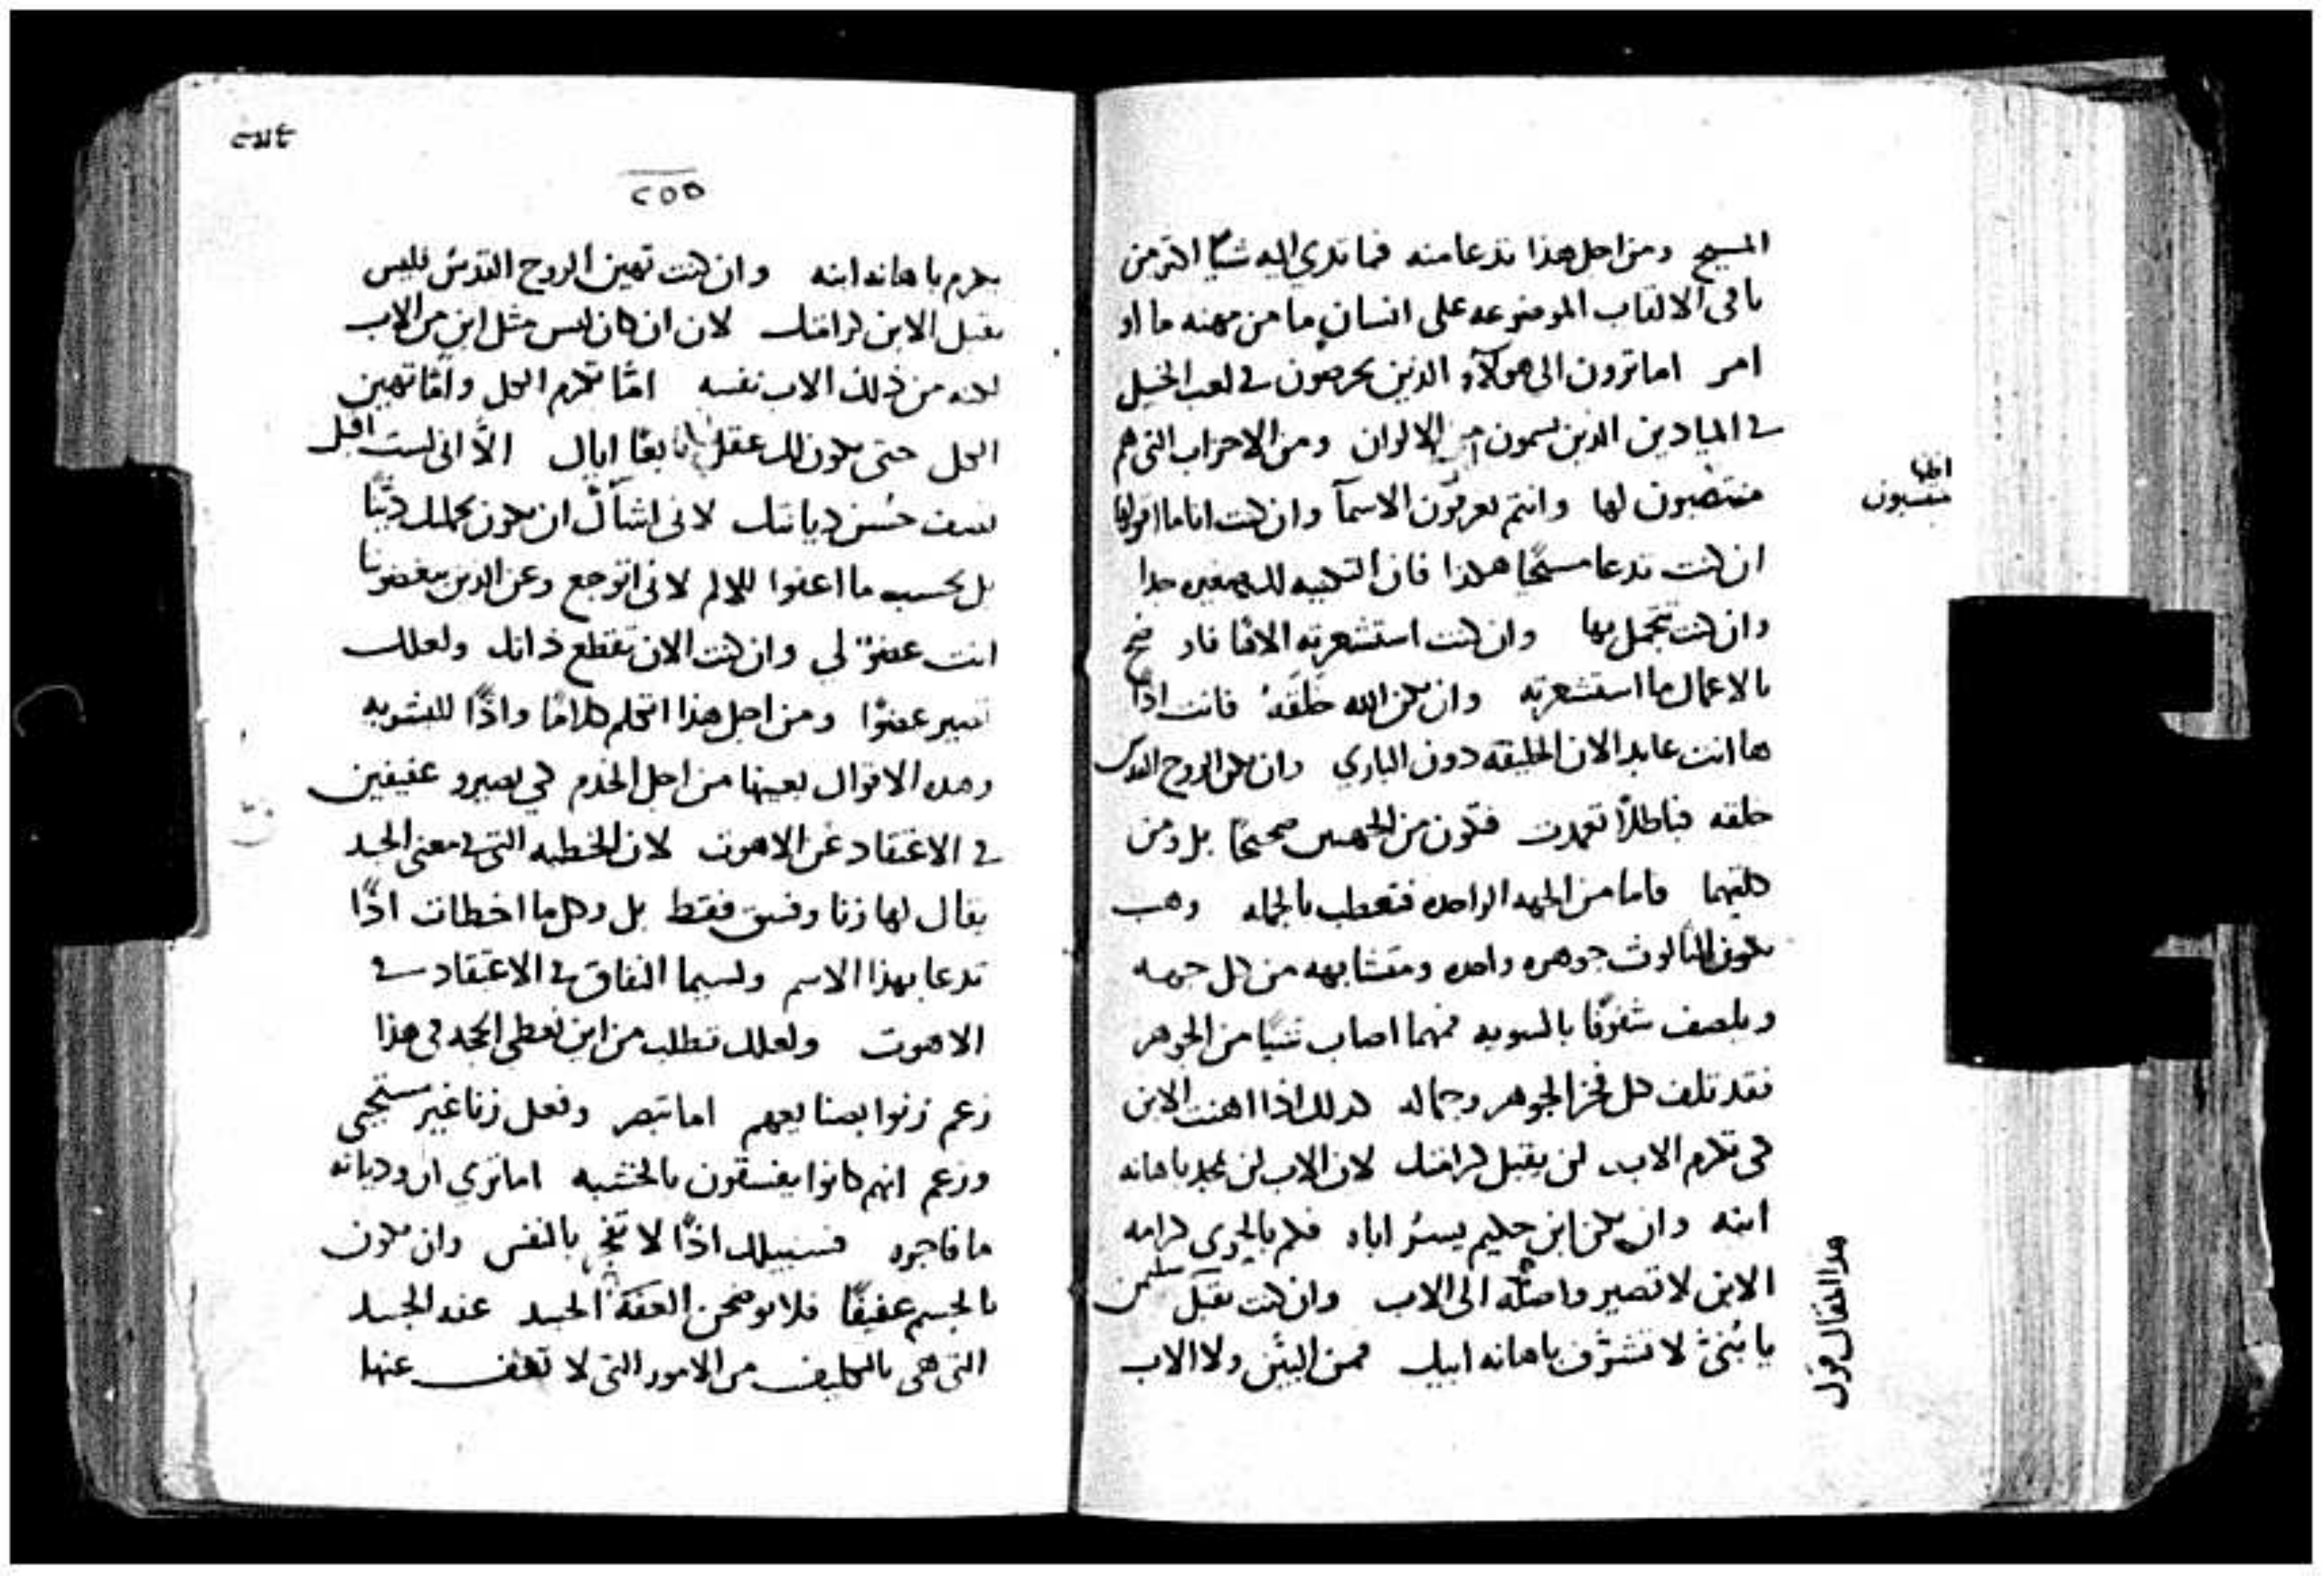 المسيح ومن اجل هذا تدعا منه فما تدي اليه شيًا اكثر من
باقى الالقاب الموضوعه على انسان ما من مهنه ما او
امر اما ترون الى هولآء الذين يحرصون في لعب الخيل
في الميادين الذين يسمون من الالوان ومن الاحزاب التى هم
منتصبون لها وانتم تعرفون الاسمآ وان كنت انا ما اقولها
اظنها
منتسبون
ان كنت تدعا مسيحيًا هكذا فان التكنيه لك صغيره جدا
وان كنت تتجمل بها وان كنت استشعرته الاهًا فاوضح
بالاعمال ما استشعرته وان يكن الله خلقهُ فانت اذًا
ها انت عابد الان الخليقه دون الباري وان يكن الروح القدس
خلقه فباطلًا تعمدت فتكون من الجهتين صحيحًا بل ومن
كلتيهما فاما من الجهه الواحده فتعطب بالجمله وهب
يكون الثالوث جوهره واحده ومتشابهه من كل جهه
ويلصف شفوفًا بالسويه فمهما اصاب شيًا من الجوهر
فقد تلف كل فخر الجوهر وجماله كذلك اذا اهنت الابن
كى تكرم الاب لن يقبل كرامتك لان الاب لن يمجد باهانه
ابنه وان يكن ابن حكيم يسرُ اباه فكم بالحري كرامه
الابن لا تصير واصله الى الاب وان كنت تقبل
يا بُنىّ لا تتشرّف باهانه ابيك فمن البيّن ولا الاب
هذا المقال قول
٢٥٥
يكرم باهانه ابنه وان كنت تهين الروح القدس فليس
يقبل الابن كرامتك لان ان كان ليس مثل ابن من الاب
لكنه من ذلك الاب نفسه امّا تكرم الكل وامّا تهين
الكل حتى يكون لك عقل تابعًا اياك الاّ انى لست اقبل
نصف حُسن ديانتك لانى اشآ ان يكون كملك ديّنًا
بل بحسب ما اعنوا للالم لانى اتوجع وعن الذين يبغضونا
انت عضوٌ لي وان كنت الان تقطع ذاتك ولعلك
تصير عضوًا ومن اجل هذا اتكلم كلامًا واذًا للبشريه
وهذه الاقوال بعينها من اجل الخدم كي يصيرو عفيفين
في الاعتقاد عن الاهوت لان الخطيه التى في معنى الجسد
يقال لها زنا وفسق فقط بل وكل ما اخطات اذًا
تدعا بهذا الاسم ولسيما النفاق في الاعتقاد في
الاهوت ولعلك تطلب من اين نعطى الحجه فى هذا
زعم زنوا بصنايعهم اما تبصر وفعل زنا غير مستحيى
وزعم انهم كانوا يفسقون بالخشبه اما تري ان وديانه
ما فاجره فسبيلك اذًا لا تفجر بالنفس وان تكون
بالجسم عفيفًا فلا توضحن العفه الجسد عند الجسد
التى هى بالتكليف من الامور التى لا تعفف عنها